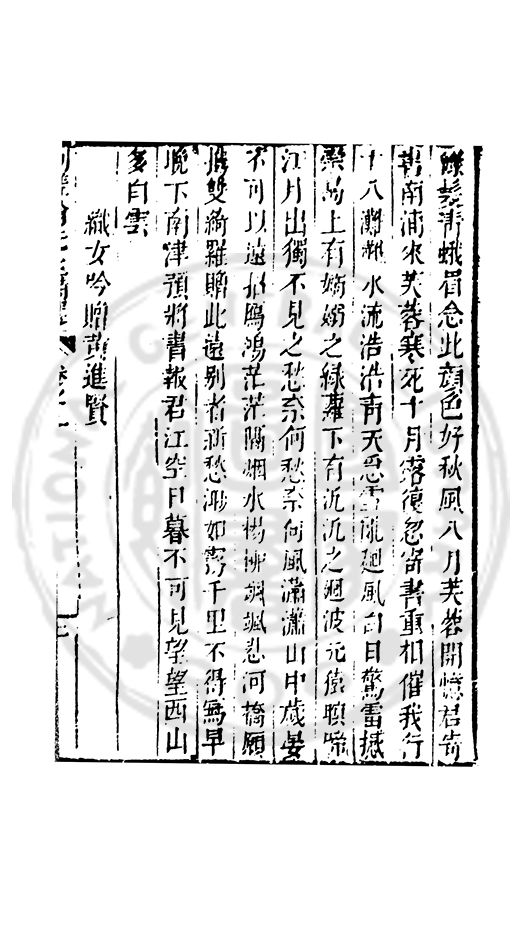 綠髮青蛾眉念此顔色好秋風八月芙蓉開憶君寄
書南浦來芙蓉寒死十月露復忽寄書重相催我行
十八灘灘水流浩浩青天惡雪亂迴風白日驚雷撼
崇島上有嫋嫋之綠蘿下有沉沉之迴波元猿暝啼
江月出獨不見之愁奈何愁奈何風瀟瀟山中歲晏
不可以遠招鴈鴻茫茫隔烟水楊柳颯颯悲河橋願
報雙綺羅贈此遠别者新愁渺如雲千里不得無早
晩下南津預將書報君江空日暮不可見望望西山
多白雲
織女吟贈黄進賢